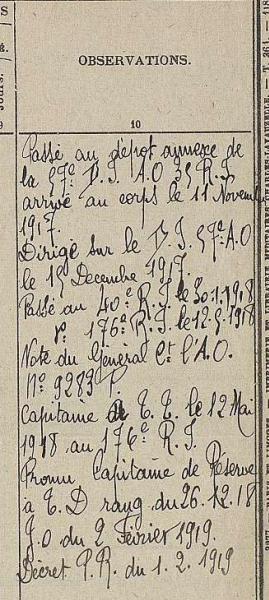 OBSERVATIONS.
10
Passé au dépôt annexe de
la 57e D.I. A.O 35 R.I
arrivé au corps le 11 Novembre
1917.
Dirigé sur le D.I. 57e A.O
le 15 Décembre 1917.
Passé au 40e R.I le 30.1.1918
176e R.I. le 12.5.1918
Note du Général Ct l'A.O.
No 9283 P.
Capitaine à T.T. le 12 Mai
1918 au 176e R.I.
Promu Capitaine de Réserve
à T.D rang du 26.12.18
J.O du 2 Février 1919.
Décret P.R. du 1.2.1919